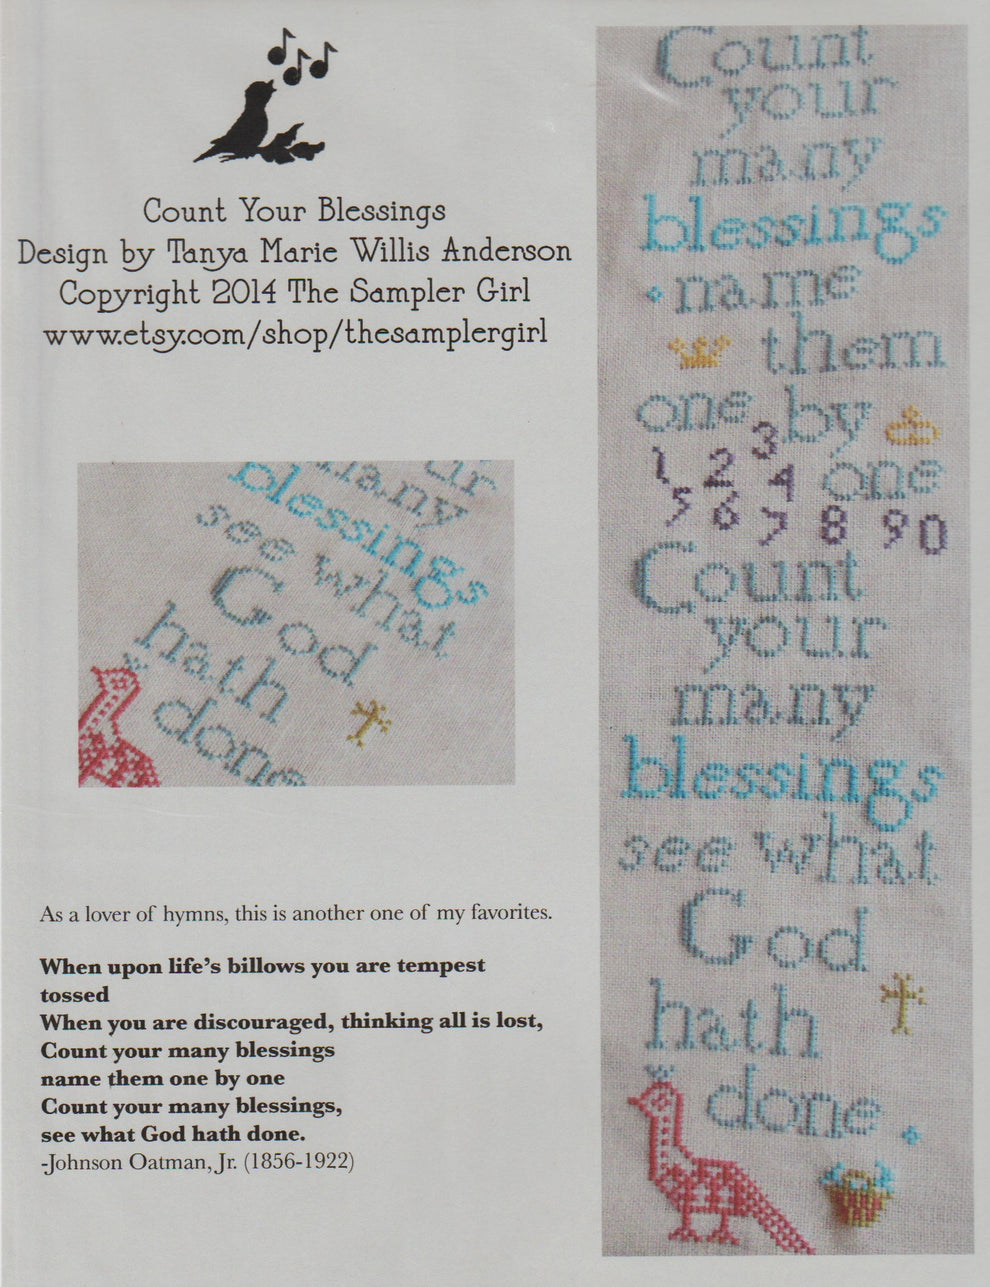 Count Your Blessings
Design by Tanya Marie Willis Anderson
Copyright 2014 The Sampler Girl
www.etsy.com/shop/thesamplergirl
many ur
blessings
see what
God
hath
done
As a lover of hymns, this is another one of my favorites.
When upon life's billows you are tempest
tossed
When you are discouraged, thinking all is lost,
Count your many blessings
name them one by one
Count your many blessings,
see what God hath done.
-Johnson Oatman, Jr. (1856-1922)
Count
your
many
blessings
name
them
one by
one
1 2 3 4
5 6 7 8 9 0
Count
your
many
blessings
see what
God
hath
done.